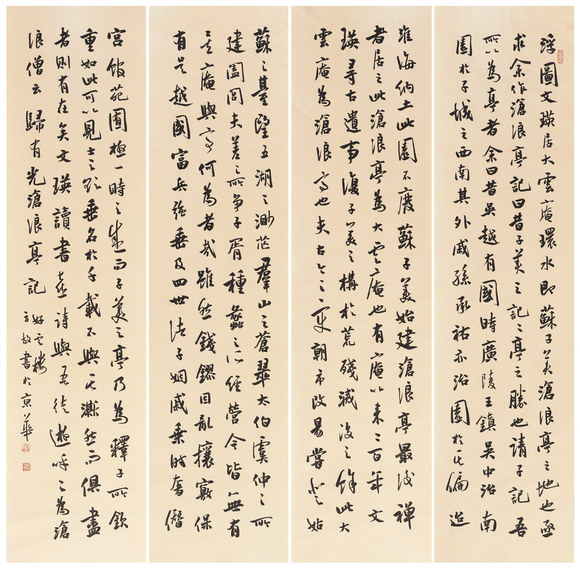 浮圖文瑛居大雲庵環水即蘇子美滄浪亭之地也亟
求余作滄浪亭記曰昔子美之記記亭之勝也請子記吾
所以為亭者余曰昔吳越有國時廣陵王鎮吳中治南
園於子城之西南其外戚孫承祐亦治園於其偏迨
淮海納土此園不廢蘇子美始建滄浪亭最後禪
者居之此滄浪亭為大雲庵也有庵以來二百年文
瑛尋古遺事復子美之構於荒殘滅沒之餘此大
雲庵為滄浪亭也夫古今之變朝市改易嘗登姑
蘇之臺望五湖之渺茫羣山之蒼翠太伯虞仲之所
建闔閭夫差之所爭子胥種蠡之所經營今皆無有
矣庵與亭何為者哉雖然錢鏐因亂攘竊保
有吳越國富兵強垂及四世諸子姻戚乘時奢僭
宮館苑囿極一時之盛而子美之亭乃為釋子所欽
重如此可以見士之欲垂名於千載不與其澌然而俱盡
者則有在矣文瑛讀書喜詩與吾徒遊呼之為滄
浪僧云 歸有光滄浪亭記
書於京華